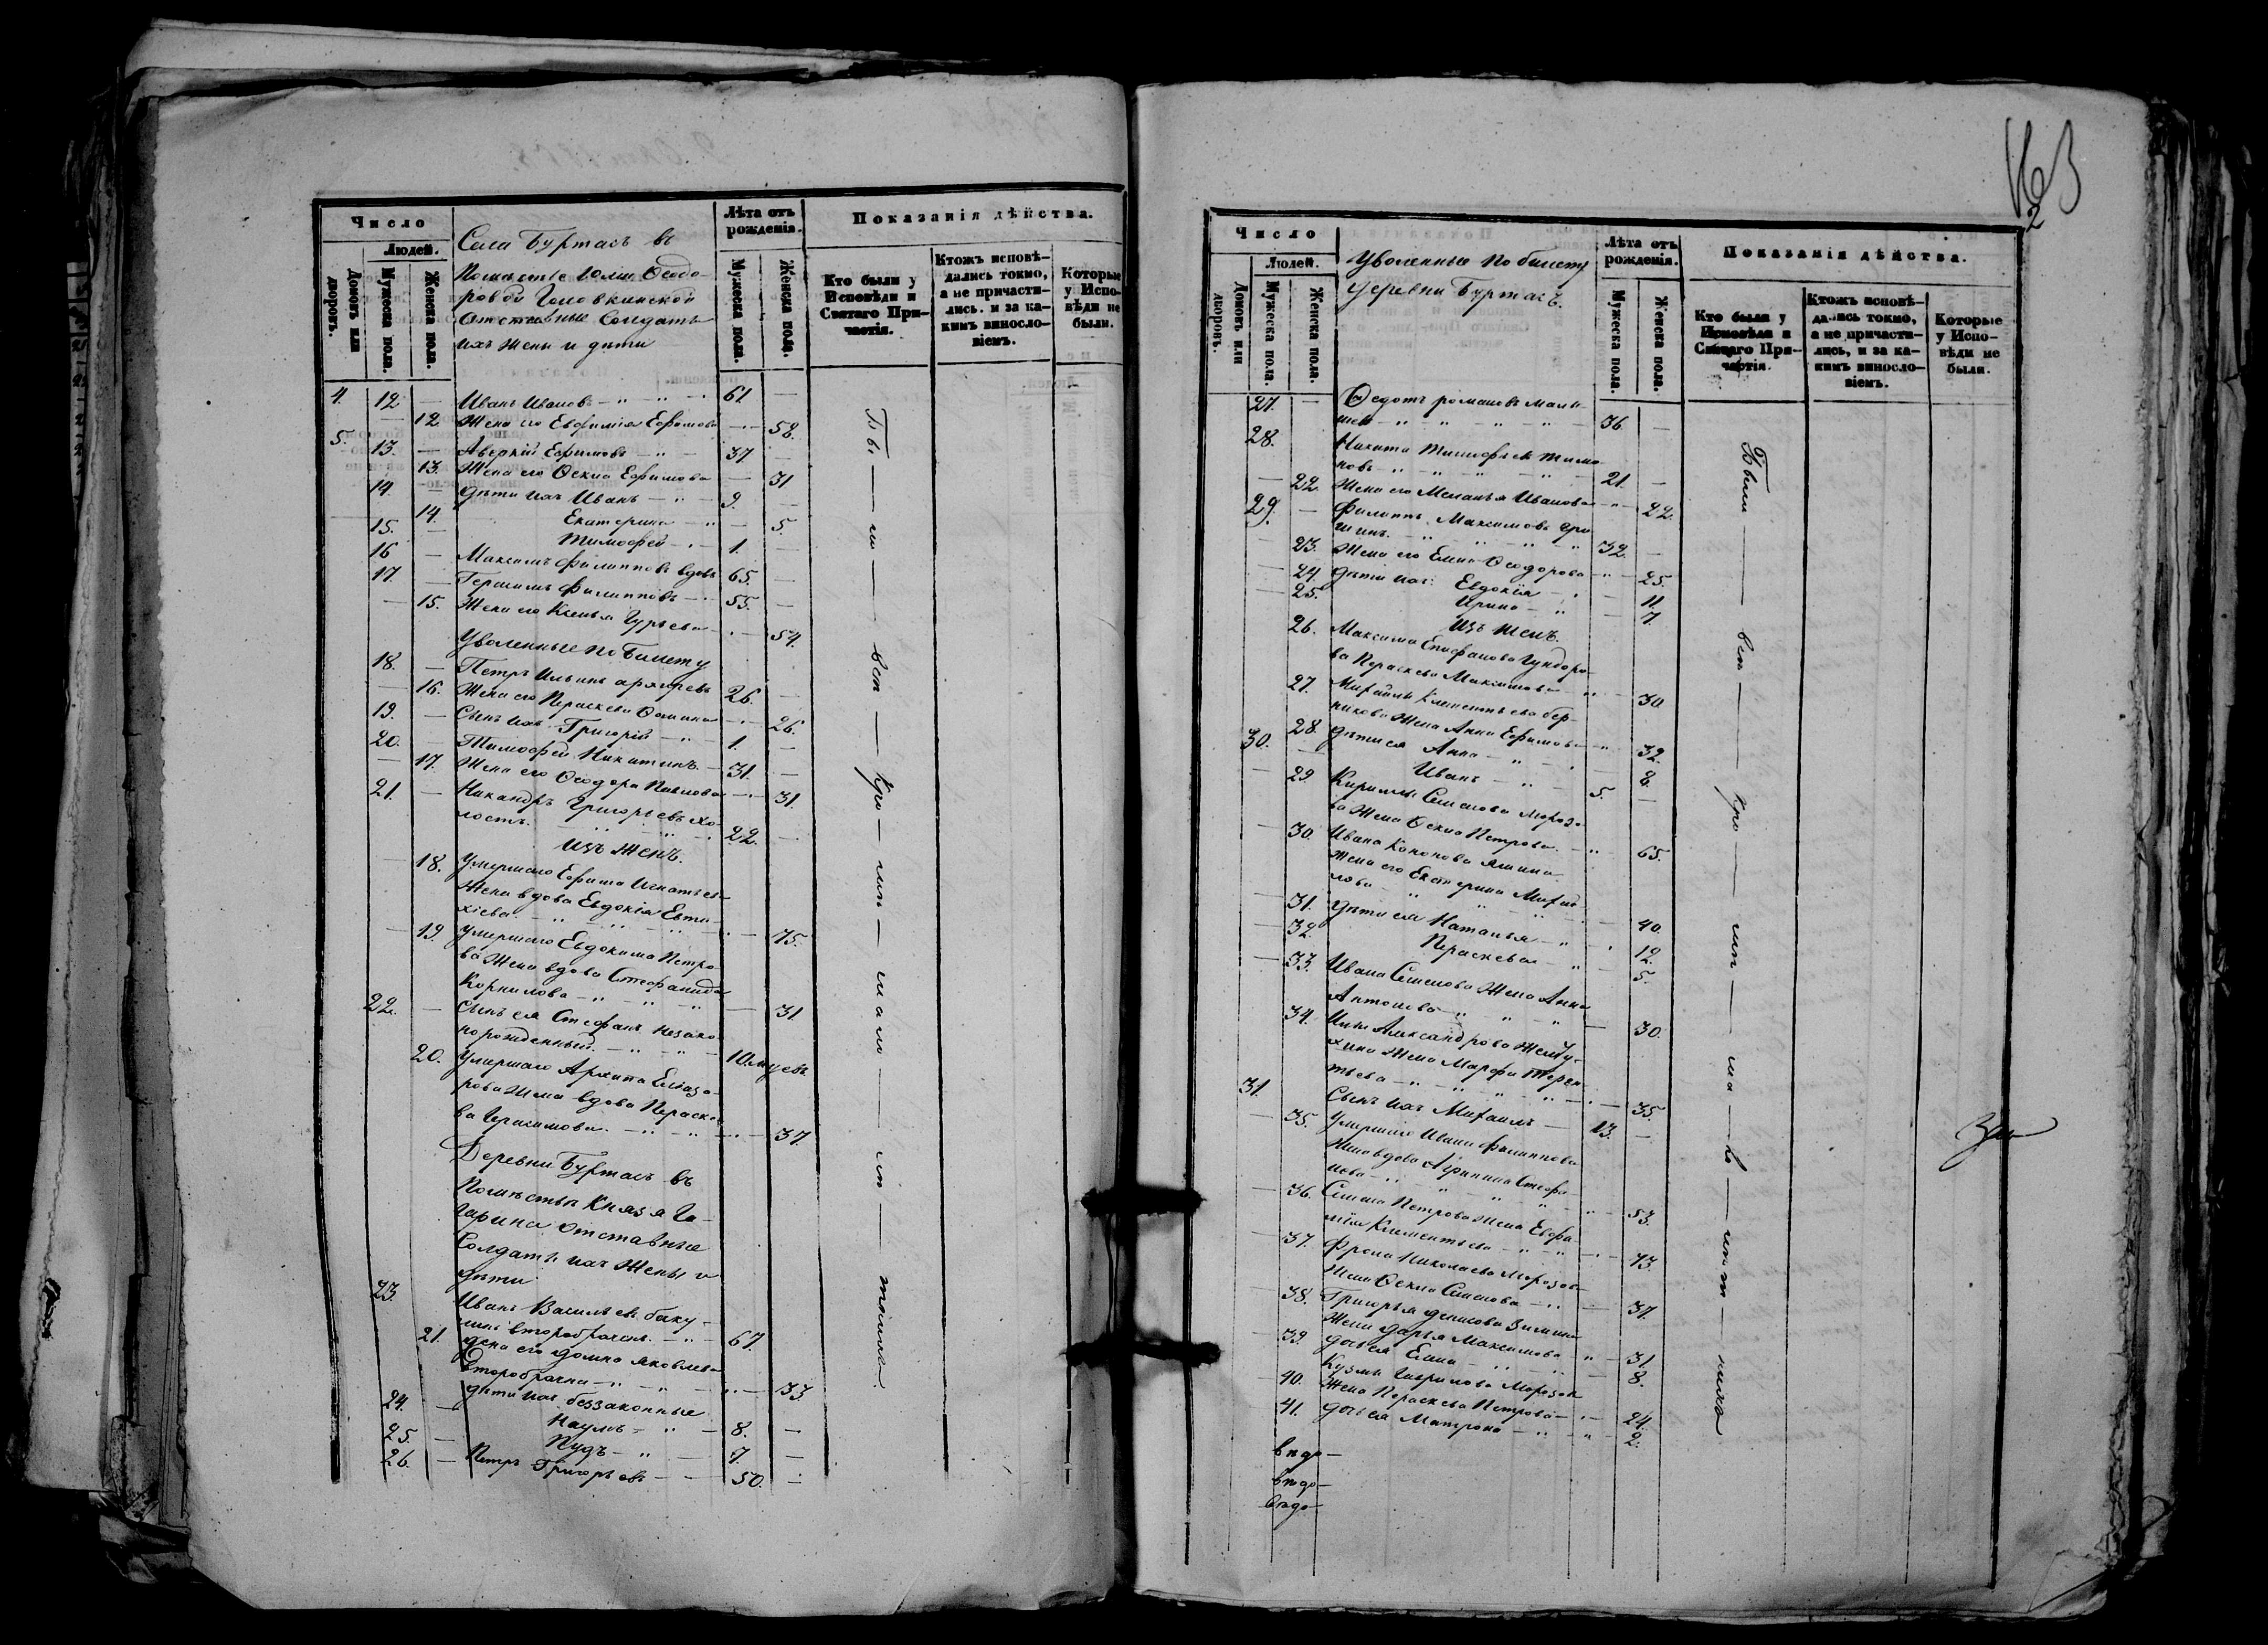 Число
Людей.
Домовъ или дворовъ.
Мужеска пола.
Женска пола.
Села Буртасъ въ
Поместье Юліи Ѳеодо-
ровой Головкинской
Отставные Солдаты
ихъ жены и дѣти
Лѣта отъ рожденія.
Мужеска пола.
Женска пола.
Показанія дѣйства.
Кто были у Исповѣди и Святаго Причастія.
Ктожъ исповѣ-дались токмо, а не причасти-лись. и за ка-кимъ виносло-віемъ.
Которые у Испо-вѣди не были.
4. 12 — Иванъ Ивановъ — 61 —
— 12 Жена его Евфимія Ефимова — 58.
5. 13. — Аверкій Ефимовъ — 37 —
13. Жена его Ѳекла Ефимова — 31
14. — Дѣти ихъ Иванъ — 9. —
14. Екатерина — 5.
15. — Тимофей — 1. —
16 — Максимъ Филипповъ вдовъ 65. —
17. — Герасимъ Филипповъ — 55. —
— 15. Жена его Ксенья Гурьева — 54.
Уволенные по Билету
18. — Петръ Ильинъ 26. —
— 16. Жена его Пераскева — 26.
19. — Сынъ ихъ Григорій — 1. —
20. — Тимофей Никитинъ. — 31. —
— 17. Жена его Ѳеодора Павлова — 31.
21. — Никандръ Григорьевъ хо-
лостъ. 22. —
Изъ женъ.
— 18. Умершаго Ефима Игнатьева
жена вдова Евдокія Евти-
хіева — 75.
— 19. Умершаго Евдокима Петро-
ва жена вдова Стефанида
Корнилова — 31
22. — Сынъ ея Стефанъ незако-
норожденный. — 10.
20. Умершаго Архипа Елиаза-
рова жена вдова Пераске-
ва Герасимова. — 37
Деревни Буртасъ въ
Поместьи Князя Га-
гарина отставные
Солдаты ихъ жены и
дѣти
23. Иванъ Васильевъ баку-
линъ второбрачн. — 67.
21. жена его домна яковлева
второбрачна — 33
дѣти ихъ беззаконные
24. — Наумъ — 8. —
25. — Пудъ — 7. —
26. — Петръ Григорьевъ — 50. —
Число
Людей.
Домовъ или дворовъ.
Мужеска пола.
Женска пола.
Уволенные по билету
Деревни Буртасъ.
Лѣта отъ рожденія.
Мужеска пола.
Женска пола.
Показанія дѣйства.
Кто были у Исповѣди и Святаго При-частія.
Ктожъ исповѣ-дались токмо, а не причасти-лись, и за ка-кимъ виносло-віемъ.
Которые у Испо-вѣди не были.
27. — Ѳедотъ романовъ малы-
шевъ — 36. —
28. Никита Тимофѣевъ Тимо-
новъ 21. —
— 22. Жена его Меланья Иванова — 22.
29. — Филиппъ Максимовъ
32. —
23. Жена его Елена Ѳеодорова — 25.
— 24. Дѣти ихъ: Евдокія — 11.
— 25. Ирина — 7.
Изъ женъ.
26. Максима Епифанова Гундоро-
ва Пераскева Максимова — 30
27. Михаила Клементьева бер-
никова жена Анна Ефимова — 32.
28. дѣти ея Анна — 8.
30. — Иванъ — 5. —
29 Кирилы Семенова Мороз-
ва жена Ѳекла Петрова. — 65.
— 30. Ивана Кононова
жена его Екатерина Михай-
лова — 40.
— 31. дѣти ея Наталья — 12.
— 32. Пераскева — 5.
— 33. Ивана Семенова жена Анна
Антонова — 30.
34. Ильи Александрова
жена Марфа Терен-
тьева — 35.
31. Сынъ ихъ Михаилъ — 13. —
— 35. Умершаго Ивана Филиппова
жена вдова Агрипина Стефа-
нова 53.
— 36. Семена Петрова жена Евфи-
мія Клементьева — 73.
— 37. Фрола Николаева Морозова
жена Ѳекла Семенова — 37.
— 38. Григорья денисова
жена дарья Максимова — 31.
— 39. дочь ея Елена — 8.
Кузмы Гаврилова Морозова
— 40. жена Пераскева Петрова — 24.
— 41. дочь ея Матрона — 2.